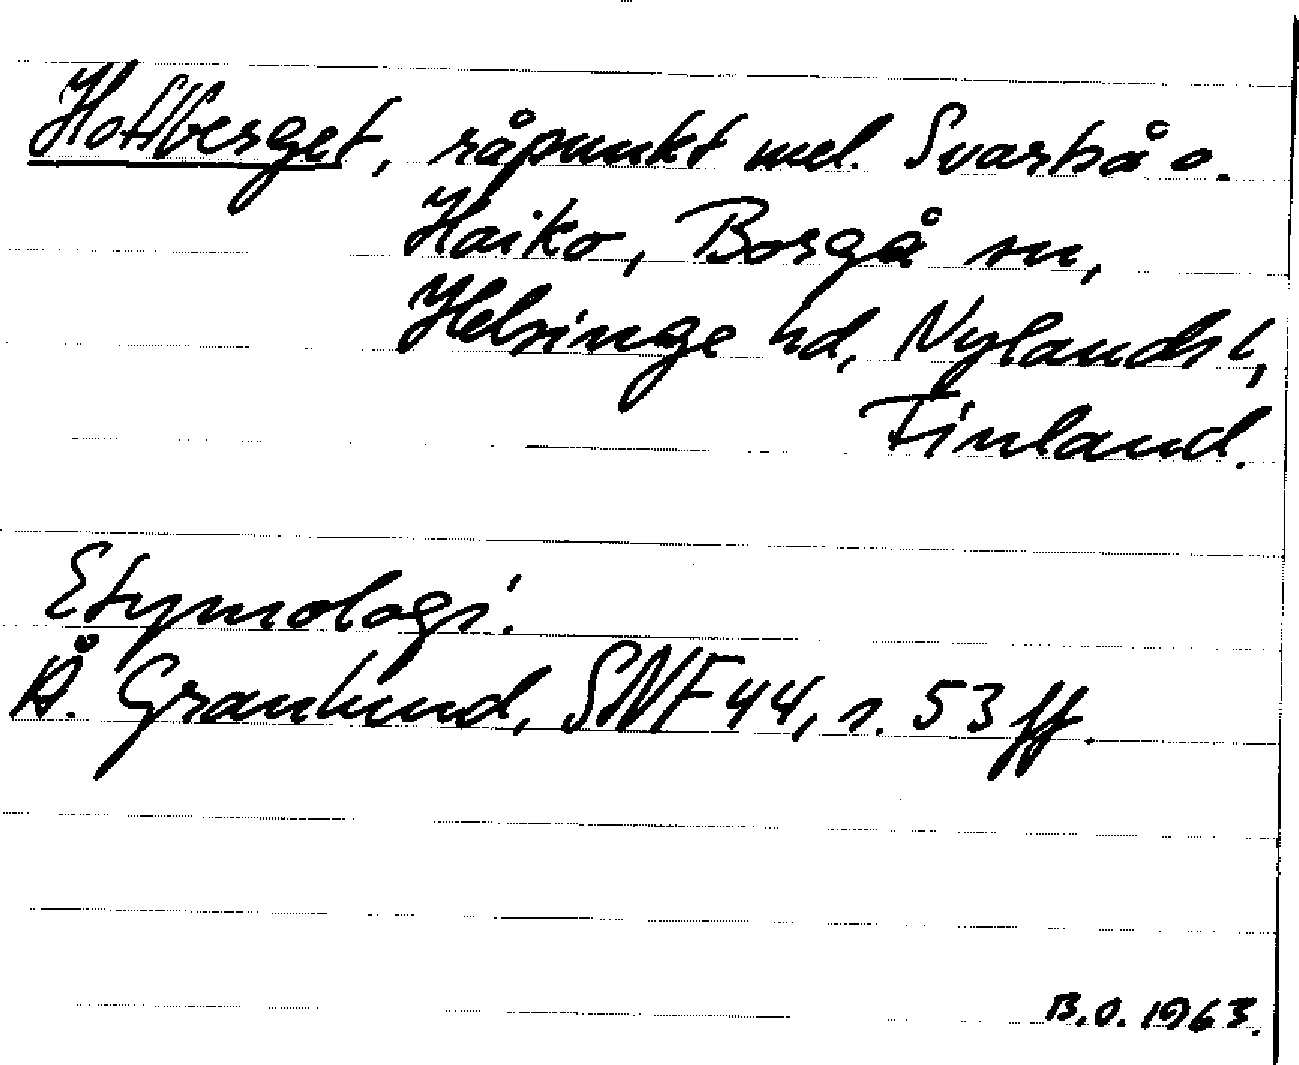 Hottberget, råpunkt mel. Svartså o.
Haiko, Borgå sn,
Helsinge hd, Nylands l,
Finland.
Etymologi.
Å. Granlund, SNF 44, s. 53 ff.
B.O. 1963.